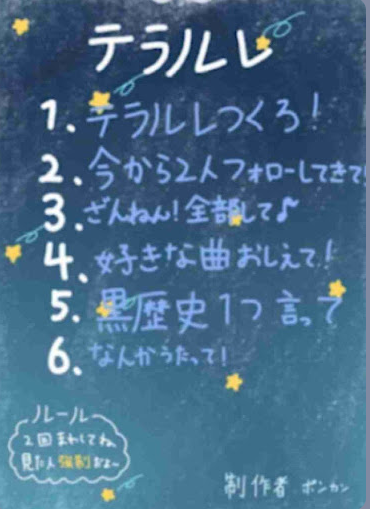 テラルレ
1.テラルレつくろ!
2.今から2人フォローしてきて!
3.ざんねん!全部して♪
4.好きな曲おしえて!
5.黒歴史1つ言って
6.なんかうたって!
ルール
2回まわしてね
見た人強制だよ~
制作者 ポンカン